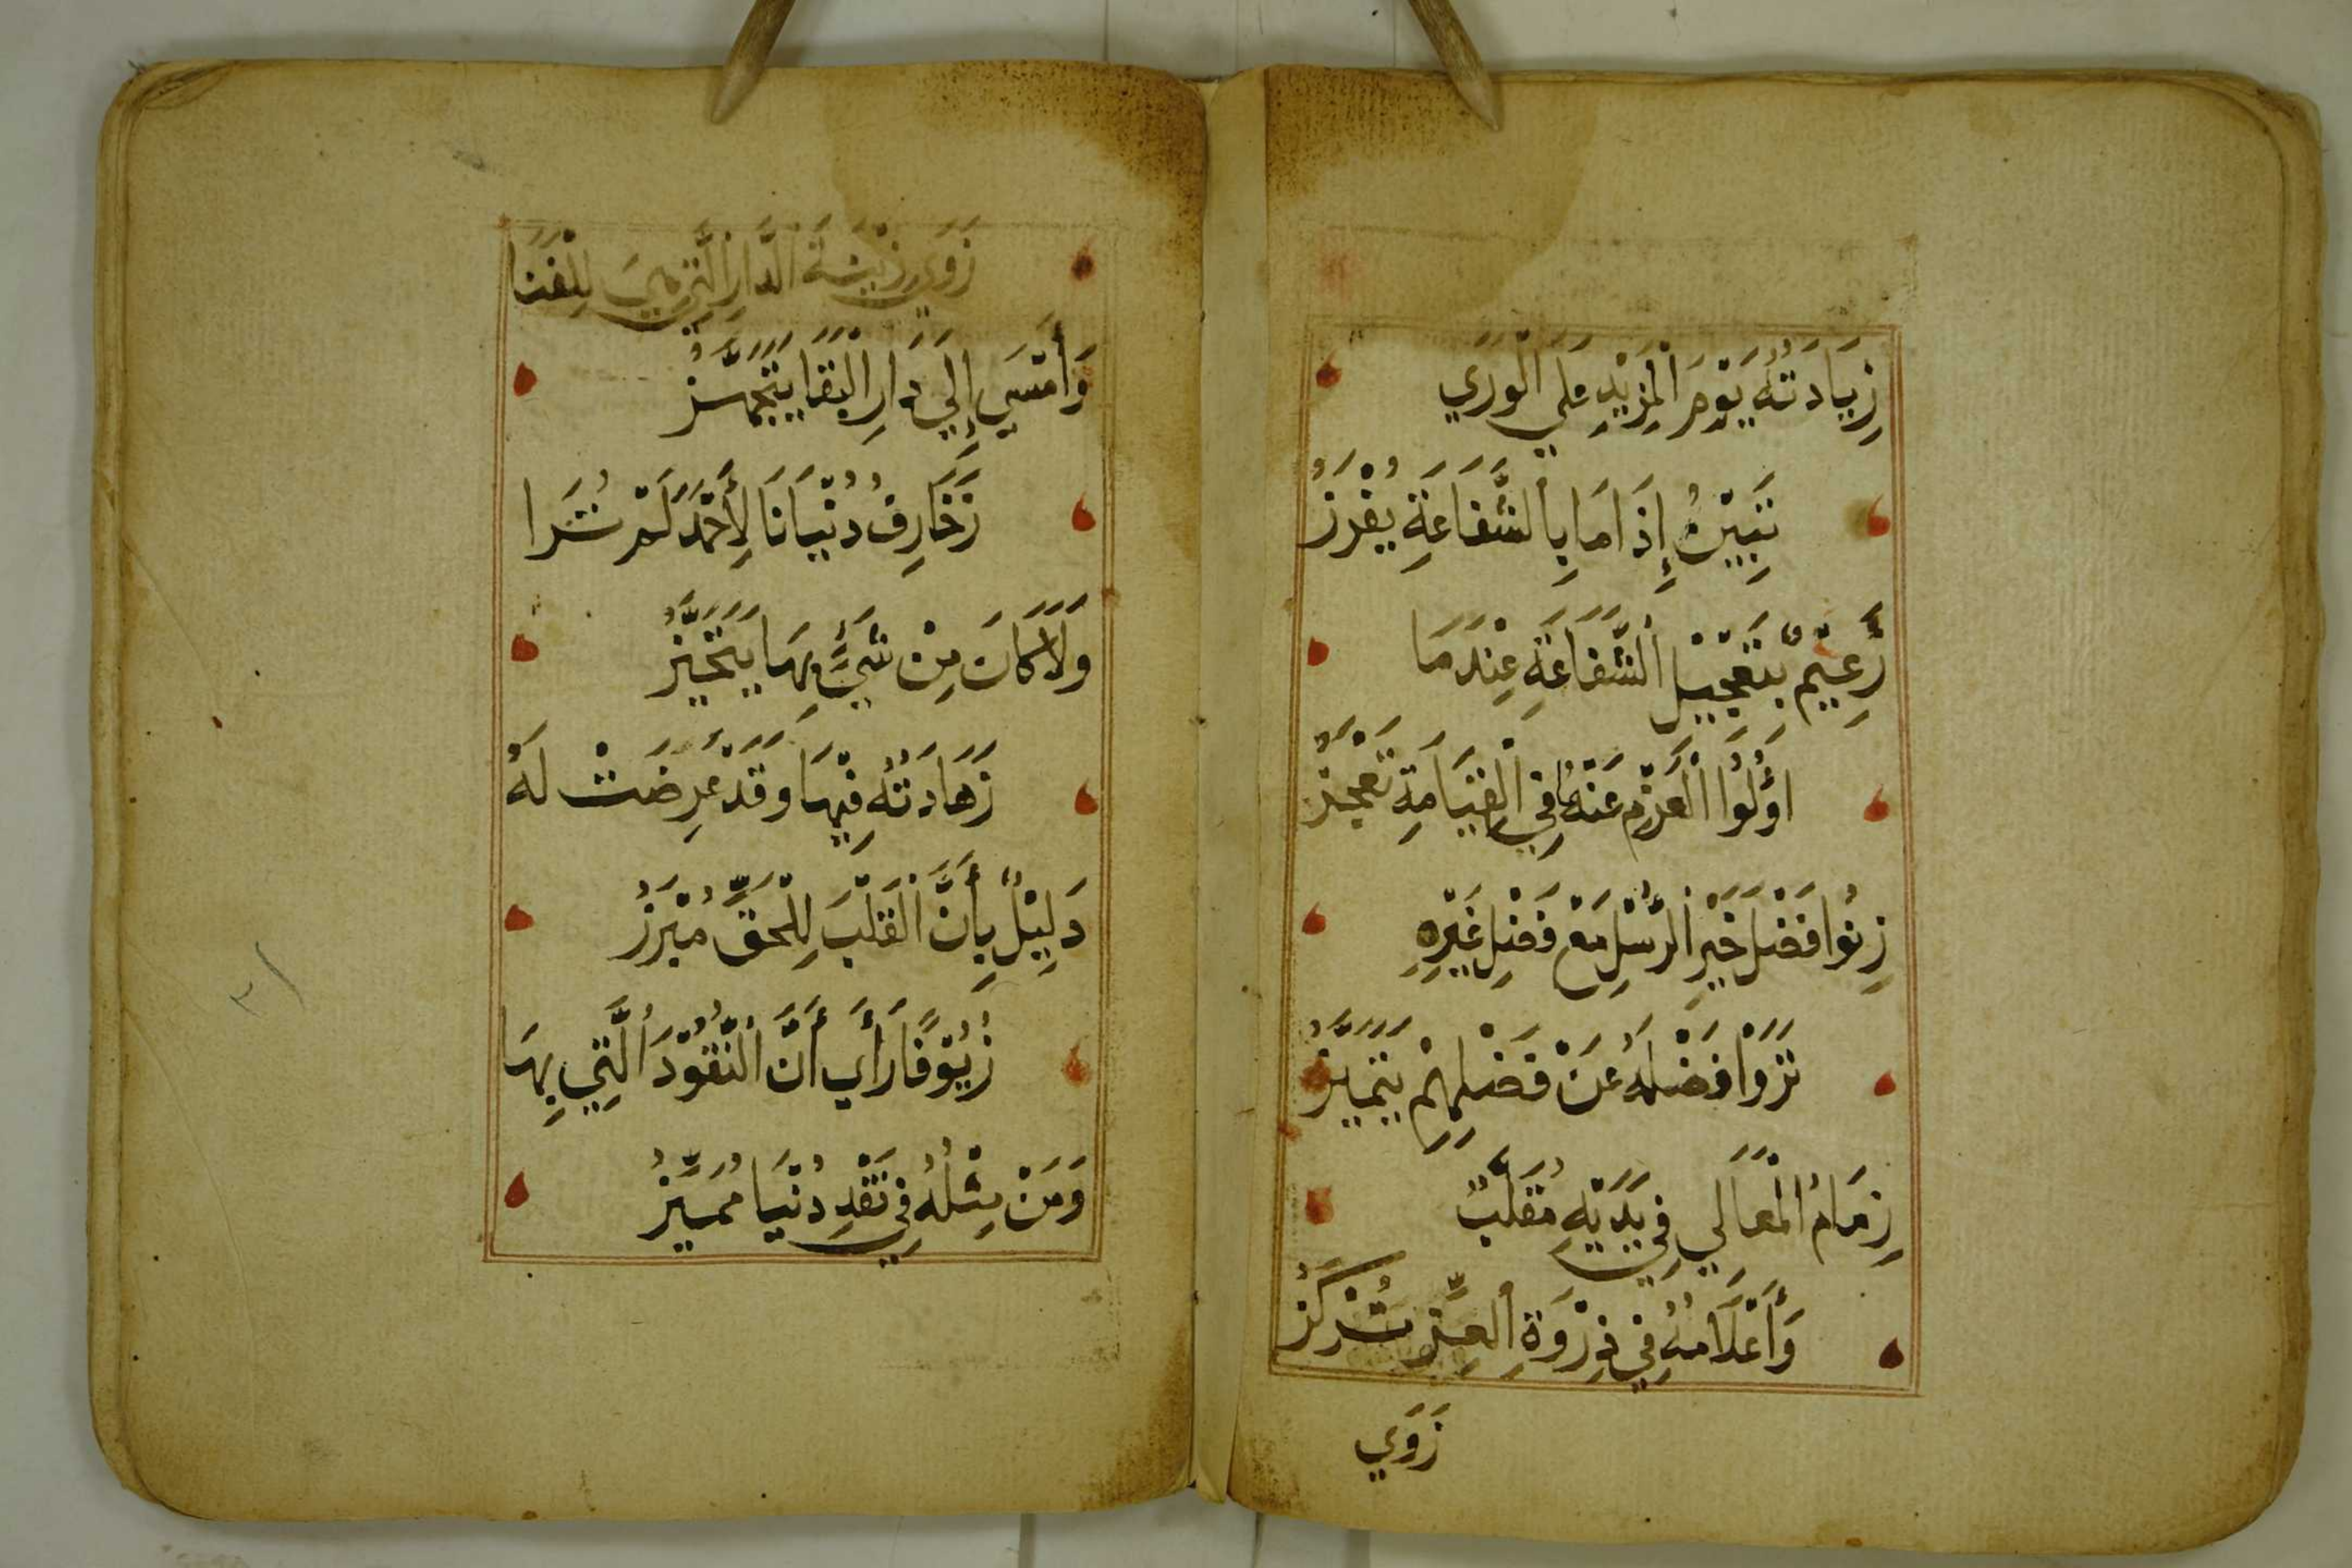 زِيَادَتُهُ يَوْمَ الْمَزِيْدِ عَلَي الْوَرَي
تَبِيْنُ إِذَامَا بِالشَّفَاعَةِ يُفْرَزُ
زَعِيْمٌ بِتَعْجِيْلِ الشَّفَاعَةِ عِنْدَمَا
اؤُلُوُا الْعَزْمِ عَنْهَا فِي الْقِيَامَةِ تَعْجُزُ
زِنُوا فَضْلَ خَيْرِ الرُّسْلِ مَعْ فَضْلِ غَيْرِهِ
تَرَوْا فَضْلَهُ عَنْ فَضْلِهِمْ يَتَمَيَّزُ
زِمَامُ الْمَعَالِي فِي يَدَيْهِ مُقَلَّبٌ
وَأَعْلَامُهُ فِي ذِرْوَةِ الْعِزِّ تُرْكَزُ
زَوَي
زَوَي زِيْنَةَ الدَّارِ الَّتِي هِيَ لِلْفَنَا
وَأَمْسَي إِلَي دَارِ الْبَقَا يَتَجَهَّزُ
زَخَارِفُ دُنْيَانَا لِأَحْمَدَ لَمْ تُرَا
وَلَا كَانَ مِنْ شَيْءٍ بِهَا يَتَحَيَّزُ
زَهَادَتُهُ فِيْهَا وَقَدْ عُرِضَتْ لَهُ
دَلِيْلٌ بِأَنَّ الْقَلْبَ لِلْحَقِّ مُبْرَزُ
زُيُوْفًا رَأَي أَنَّ النُّقُوْدَ الَّتِي بِهَا
وَمَنْ مِثْلُهُ فِي نَقْدِ دُنْيَا مُمَيِّزُ